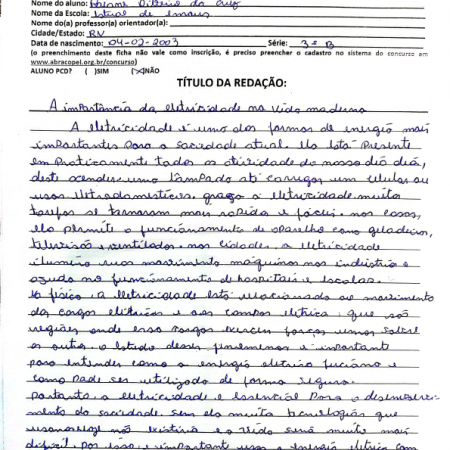 Nome do aluno:
Nome da Escola: Estral de Emaus
Nome do(a) professor(a) orientador(a):
Cidade/Estado: RN
Data de nascimento: 04-02-2003 Série: 3ª B
(o preenchimento desta ficha não vale como inscrição, é preciso preencher o cadastro no sistema do concurso em
www.abracopel.org.br/concurso)
ALUNO PCD? ( )SIM (X)NÃO
TÍTULO DA REDAÇÃO:
A importância da eletricidade na vida moderna
A eletricidade é uma das formas de energia mais
importantes para a sociedade atual. Ela está presente
em praticamente todas as atividade do nosso dia dia,
deste acender uma lâmpada até carregar um celular ou
usar eletrodomesticos, graça a eletricidade muita
tarefas se tornaram mais rapida e fáceis. nas casas,
ela permite o funcionamento de aparelho como geladeiras,
televisão e ventilador. nas cidades, a eletricidade
ilumina ruas movimenta máquinas nas indústria e
ajuda no funcionamento de hospitais e escolas.
Na física, a eletricidade está relacionada ao movimento
das cargas elétricas e aos campos elétrica, que são
regiões onde essa cargas exercem forças umas sobre
as outra. o estudo desses fenômenos é importante
para entender como a energia eletrica funciona e
como pode ser utilizada de forma segura.
Portanto, a eletricidade é essencial para o desenvolvi-
mento da sociedade. sem ela muita tecnologias que
usamos hoje não existiria e a vida seria muito mais
difícil. por isso, é importante usar a energia elétrica com